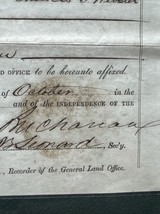 D OFFICE to be hereunto affixed.
of October in the
and of the INDEPENDENCE OF THE
Buchanan
Leonard Sec'y.
, Recorder of the General Land Office.